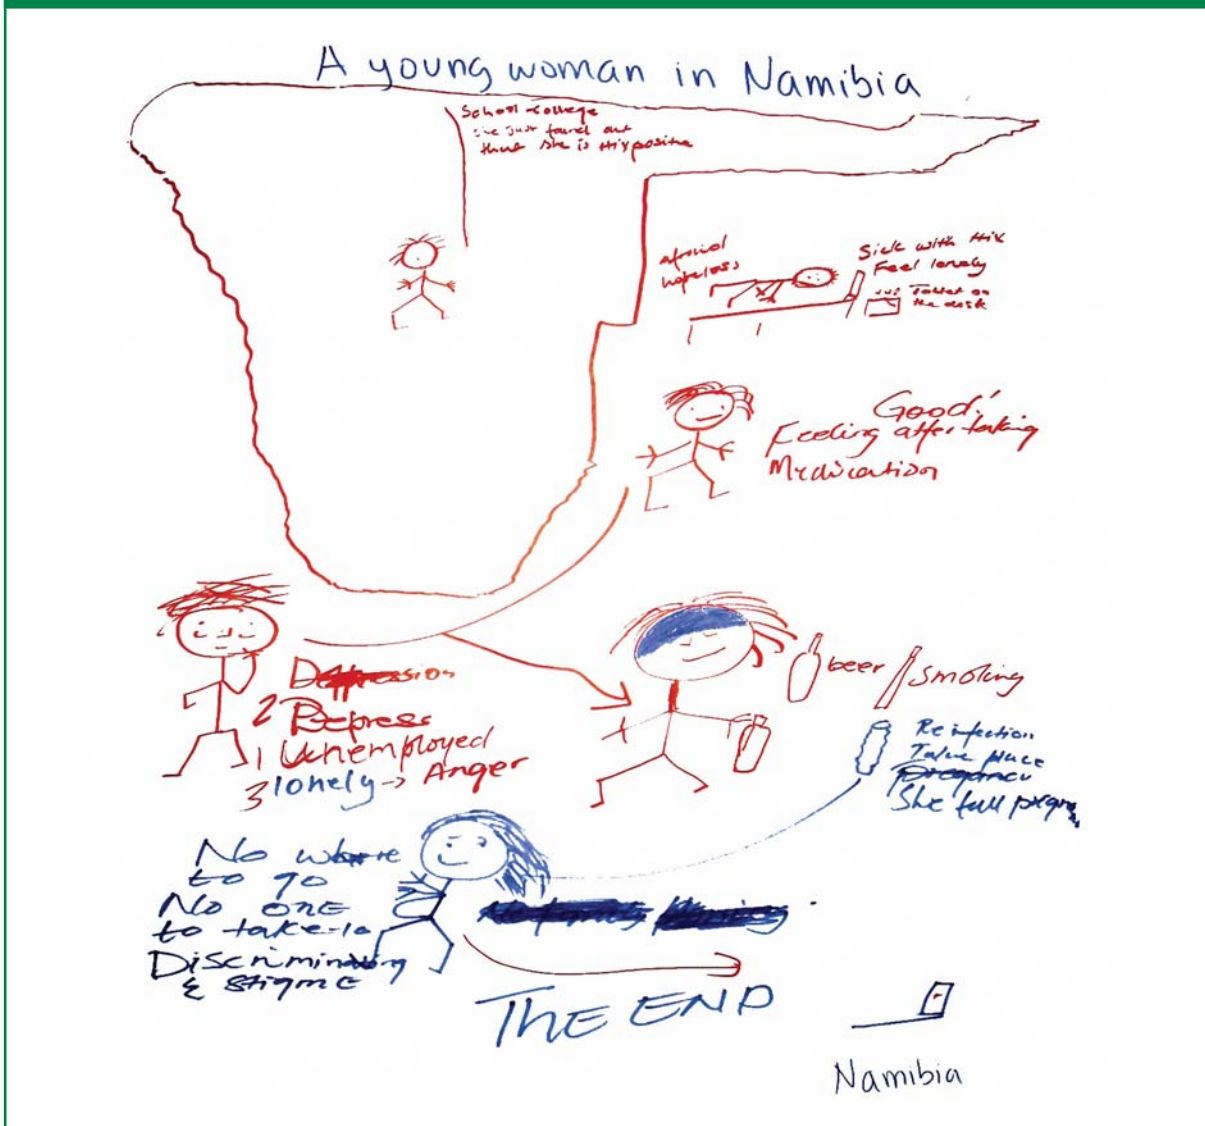 A young woman in Namibia
School college
she just found out
that she is HIV positive
afraid
hopeless
Sick with HIV
Feel lonely
Tablet on
the desk
Good!
Feeling after taking
Medication
2 Depress
1 Unemployed
3 lonely → Anger
beer
smoking
Reinfection
Take place
She full
No where
to go
No one
to take-lo
Discrimination
& stigme
THE END
Namibia